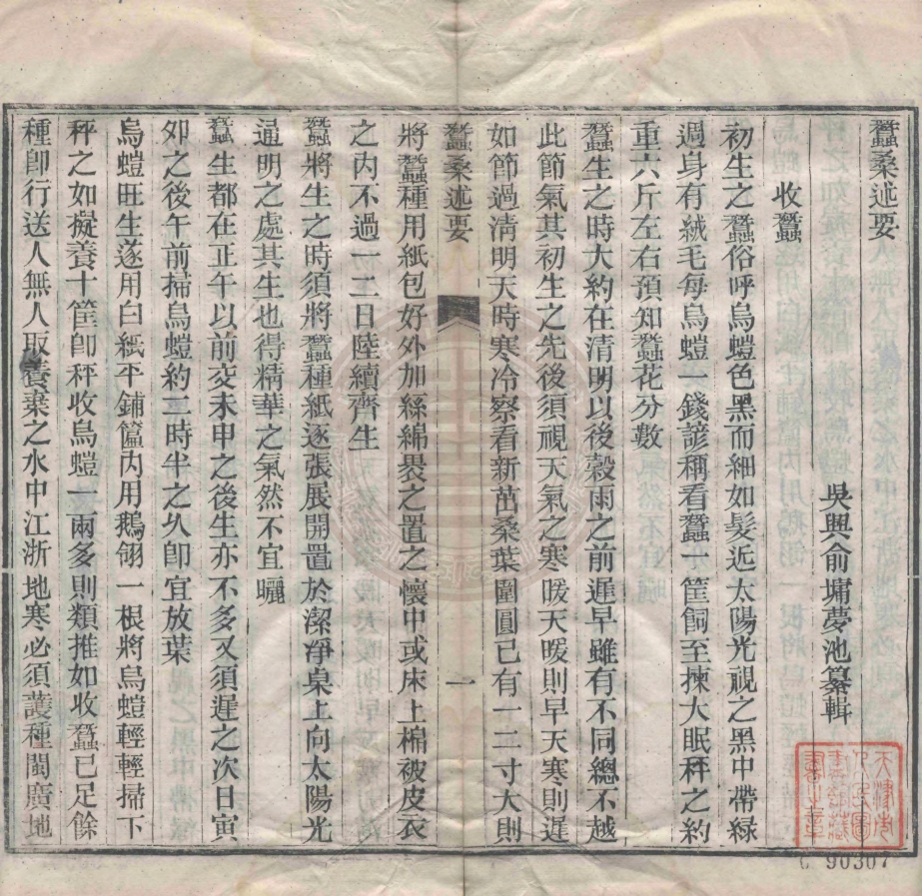 蠶桑述要
吳興俞墉夢池纂輯
收蠶
初生之蠶俗呼烏螘色黑而細如髮近太陽光視之黑中帶綠
週身有絨毛每烏螘一錢諺稱看蠶一筐飼至揀大眠秤之約
重六斤左右預知蠶花分數
蠶生之時大約在清明以後穀雨之前遲早雖有不同總不越
此節氣其初生之先後須視天氣之寒暖天暖則早天寒則遲
如節過清明天時寒冷察看新茁桑葉圍圓已有一二寸大則
蠶桑述要
一
將蠶種用紙包好外加絲綿褁之置之懷中或床上棉被皮衣
之內不過一二日陸續齊生
蠶將生之時須將蠶種紙逐張展開置於潔凈桌上向太陽光
逼明之處其生也得精華之氣然不宜曬
蠶生都在正午以前交未申之後生亦不多又須遲之次日寅
夘之後午前掃烏螘約二時半之久卽宜放葉
烏螘旺生遂用白紙平鋪籃內用鵝翎一根將烏螘輕輕掃下
秤之如擬養十筐卽秤收烏螘一兩多則類推如收蠶已足餘
種卽行送人無人取養棄之水中江浙地寒必須護種閩廣地
天津市
人民圖
書館藏
書之章
C 90307